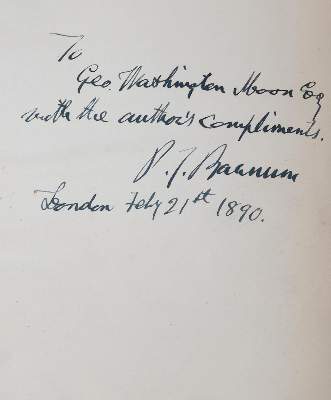 To
Geo. Washington Moon Esq
with the author's compliments.
P. T. Barnum
London Feby 21st 1890.